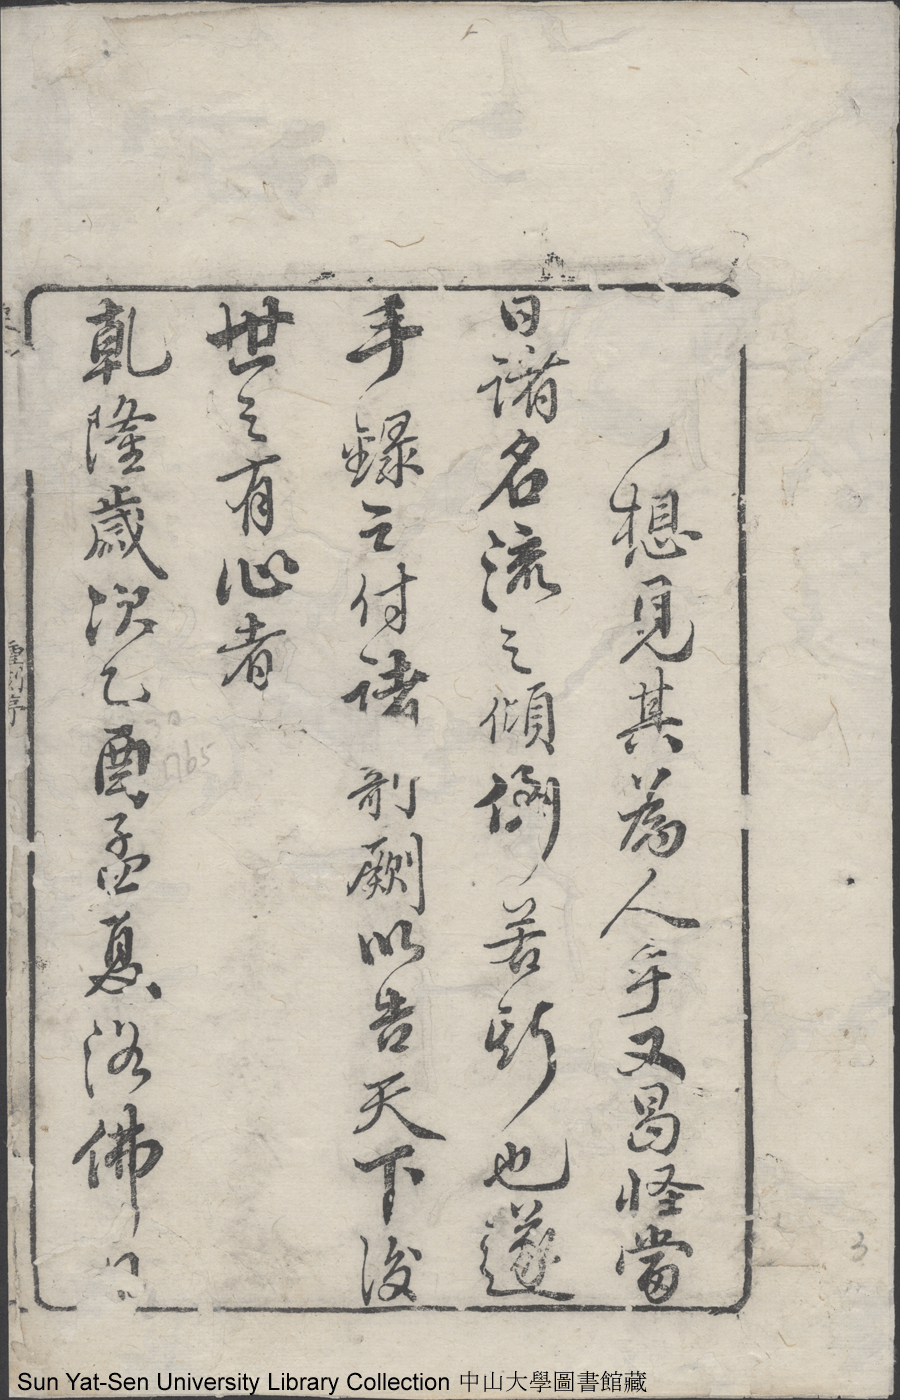 想見其為人乎又曷怪當
日諸名流之傾倒若斯也遂
手錄之付諸剞劂以告天下後
世之有心者
乾隆歲次乙酉孟夏浴佛日
重刻序
1765
3
Sun Yat-Sen University Library Collection 中山大學圖書館藏